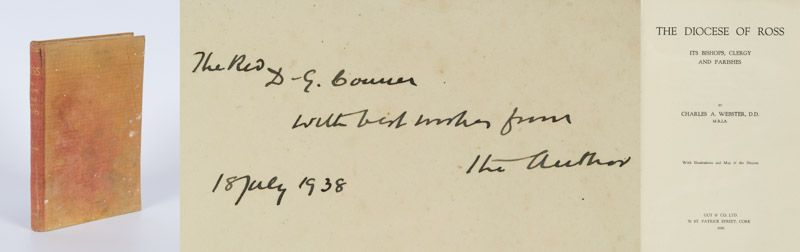 The Rev D-G. Conner
with best wishes from
the Author
18 July 1938
THE DIOCESE OF ROSS
ITS BISHOPS, CLERGY
AND PARISHES
BY
CHARLES A. WEBSTER, D.D.
M.R.I.A.
With Illustrations and Map of the Diocese
GUY & CO. LTD.
70 ST. PATRICK STREET, CORK
1936